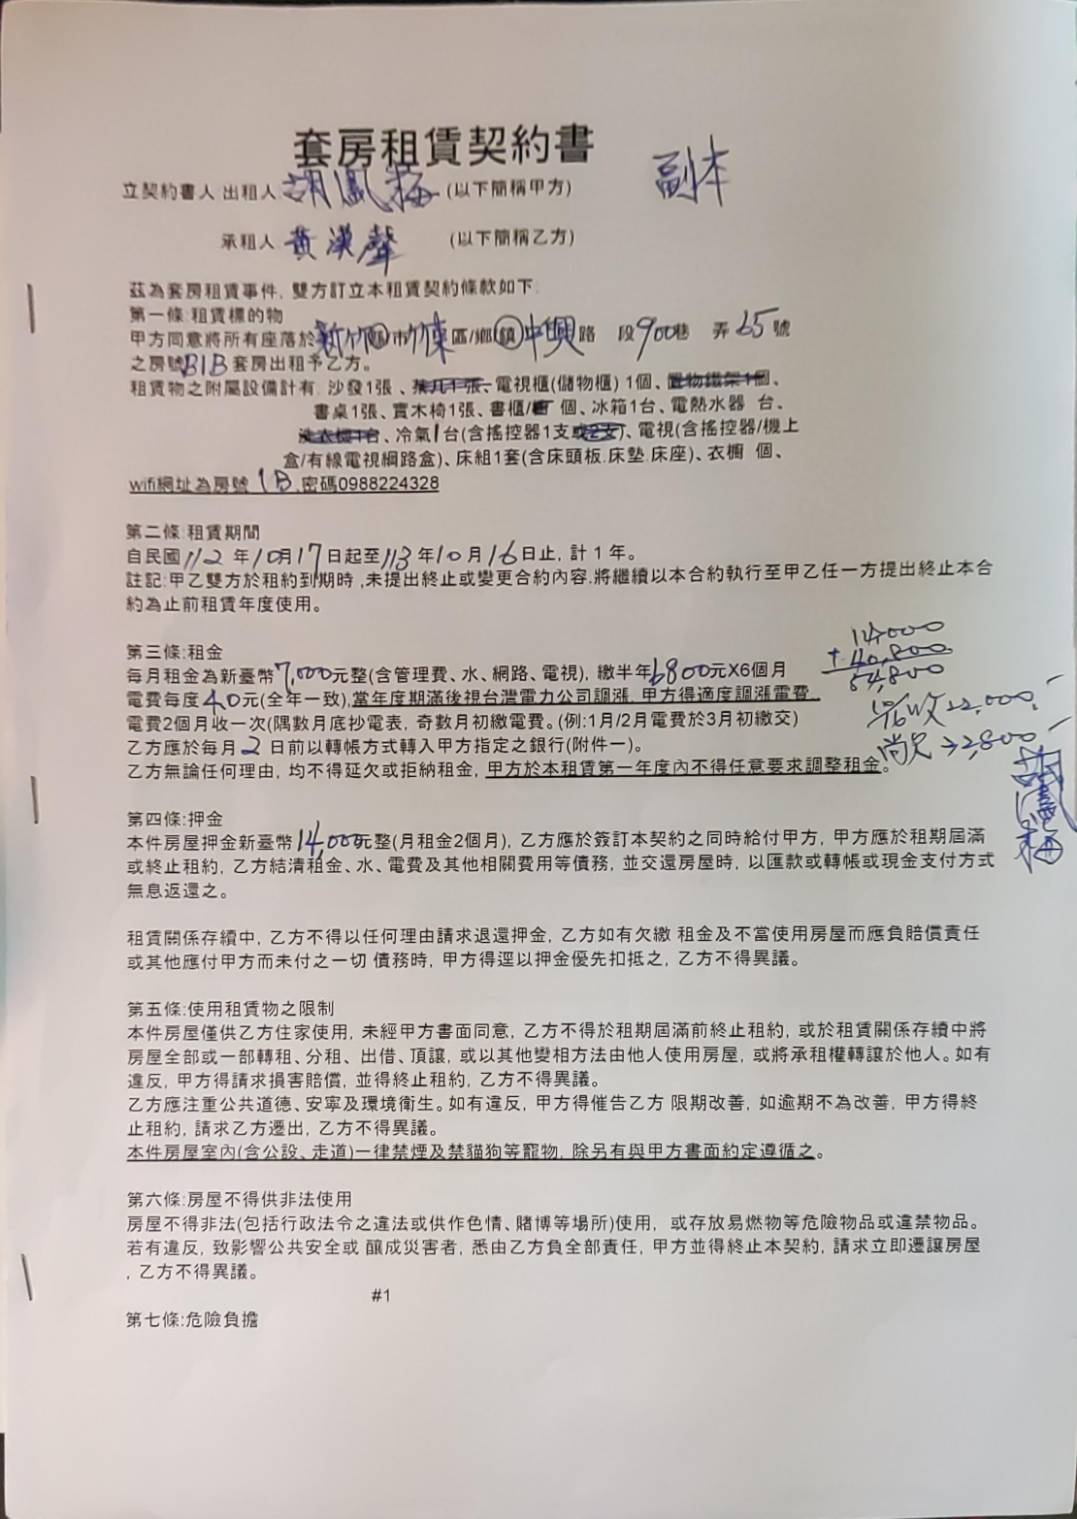 套房租賃契約書
副本
立契約書人:出租人:胡鳳梅(以下簡稱甲方)
承租人:黃漢聲 (以下簡稱乙方)
茲為套房租賃事件, 雙方訂立本租賃契約條款如下:
第一條:租賃標的物
甲方同意將所有座落於新竹縣/市竹東區/鄉鎮中興路 段900巷 弄65號
之房號B1B套房出租予乙方。
租賃物之附屬設備計有: 沙發1張、茶几1張、電視櫃(儲物櫃) 1個、置物鐵架1個、
書桌1張、實木椅1張、書櫃/ 個、冰箱1台、電熱水器 台、
洗衣機1台、冷氣1台(含搖控器1支或2支)、電視(含搖控器/機上
盒/有線電視網路盒)、床組1套(含床頭板.床墊.床座)、衣櫥 個、
wifi網址為房號1B,密碼0988224328
第二條:租賃期間
自民國112年10月17日起至113年10月16日止, 計 1 年。
註記:甲乙雙方於租約到期時 ,未提出終止或變更合約內容,將繼續以本合約執行至甲乙任一方提出終止本合
約為止前租賃年度使用。
第三條:租金
每月租金為新臺幣7,000元整(含管理費、水、網路、電視), 繳半年6800元X6個月
電費每度4.0元(全年一致),當年度期滿後視台灣電力公司調漲, 甲方得適度調漲電費..
電費2個月收一次(隅數月底抄電表, 奇數月初繳電費。(例:1月/2月電費於3月初繳交)
乙方應於每月2日前以轉帳方式轉入甲方指定之銀行(附件一)。
乙方無論任何理由, 均不得延欠或拒納租金, 甲方於本租賃第一年度內不得任意要求調整租金。
14000
+ 40,800
54,800
收22,000
尚欠32,800
第四條:押金
本件房屋押金新臺幣14,000元整(月租金2個月), 乙方應於簽訂本契約之同時給付甲方, 甲方應於租期屆滿
或終止租約, 乙方結清租金、水、電費及其他相關費用等債務, 並交還房屋時, 以匯款或轉帳或現金支付方式
無息返還之。
租賃關係存續中, 乙方不得以任何理由請求退還押金, 乙方如有欠繳 租金及不當使用房屋而應負賠償責任
或其他應付甲方而未付之一切 債務時, 甲方得逕以押金優先扣抵之, 乙方不得異議。
第五條:使用租賃物之限制
本件房屋僅供乙方住家使用, 未經甲方書面同意, 乙方不得於租期屆滿前終止租約, 或於租賃關係存續中將
房屋全部或一部轉租、分租、出借、頂讓, 或以其他變相方法由他人使用房屋, 或將承租權轉讓於他人。如有
違反, 甲方得請求損害賠償, 並得終止租約, 乙方不得異議。
乙方應注重公共道德、安寧及環境衛生。如有違反, 甲方得催告乙方 限期改善, 如逾期不為改善, 甲方得終
止租約, 請求乙方遷出, 乙方不得異議。
本件房屋室內(含公設、走道)一律禁煙及禁貓狗等寵物, 除另有與甲方書面約定遵循之。
第六條:房屋不得供非法使用
房屋不得非法(包括行政法令之違法或供作色情、賭博等場所)使用, 或存放易燃物等危險物品或違禁物品。
若有違反, 致影響公共安全或 釀成災害者, 悉由乙方負全部責任, 甲方並得終止本契約, 請求立即遷讓房屋
, 乙方不得異議。
#1
第七條:危險負擔